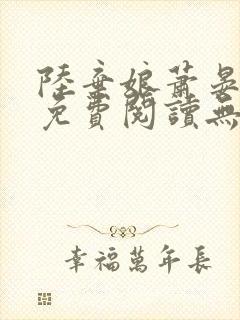 陸棄娘蕭晏
免費閱讀無
幸福萬年長